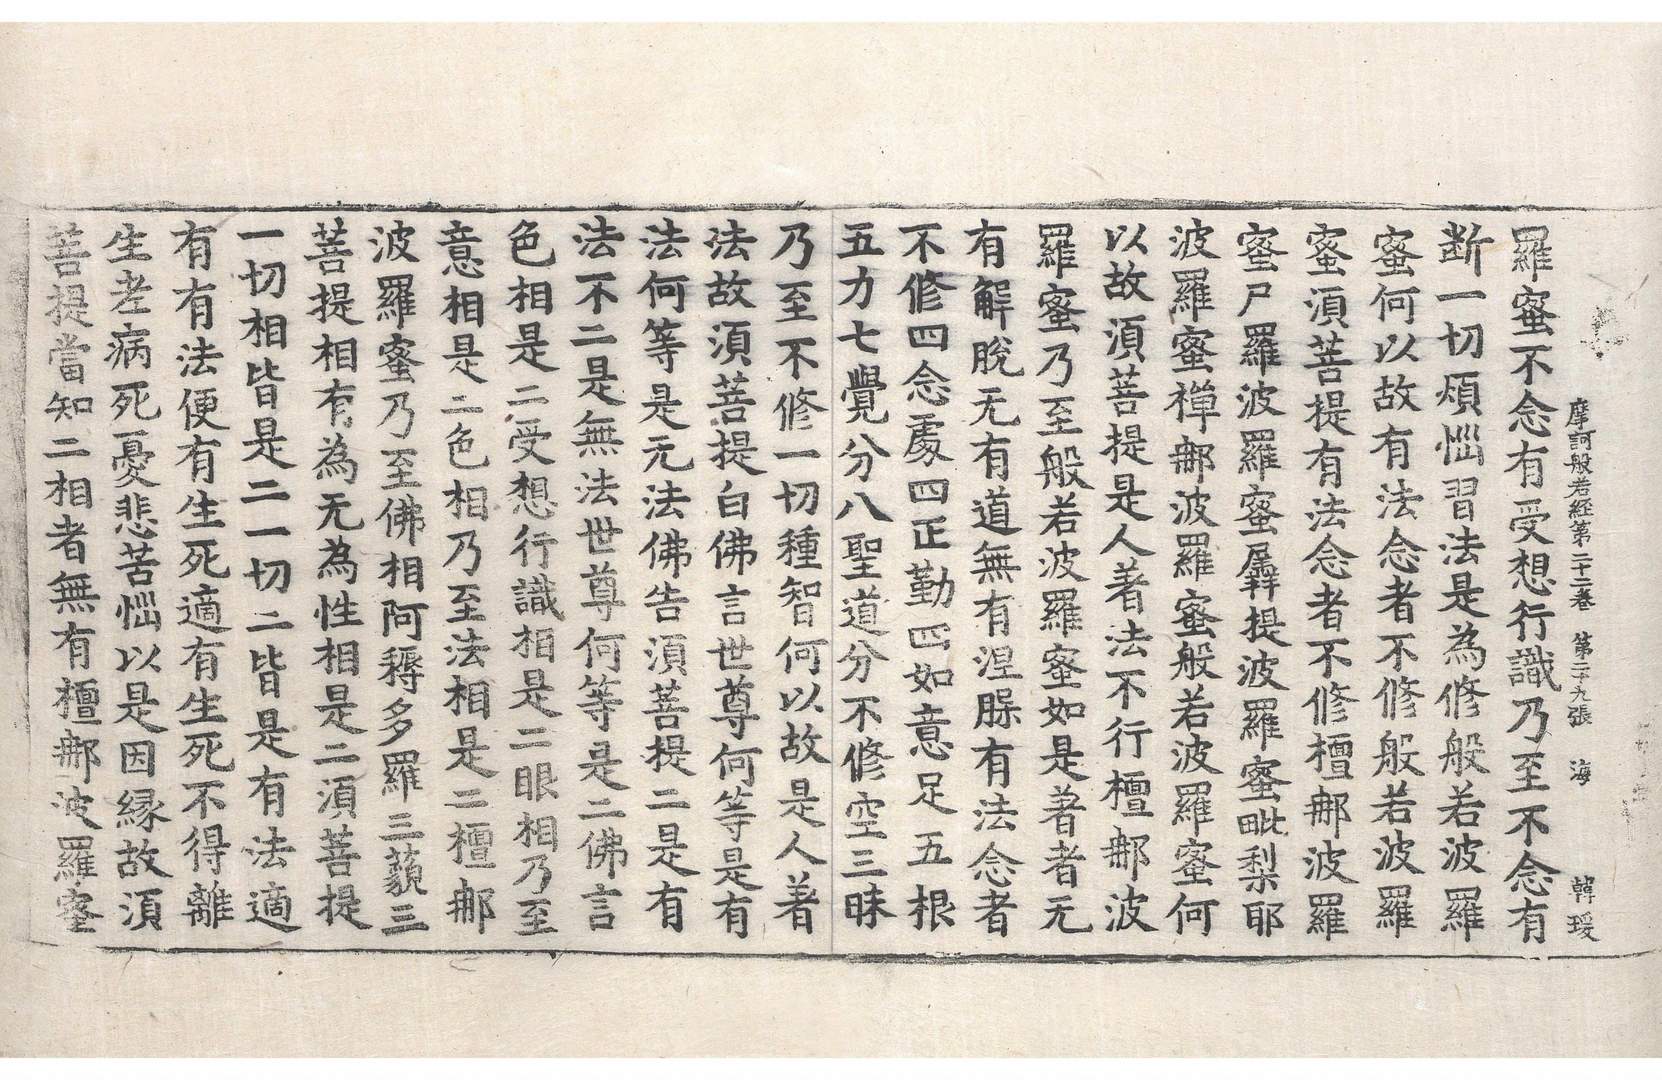 摩訶般若経第二十二卷 第二十九張 海 韓瑗
羅蜜不念有受想行識乃至不念有
断一切煩惱習法是為修般若波羅
蜜何以故有法念者不修般若波羅
蜜湏菩提有法念者不修檀𨙻波羅
蜜尸羅波羅蜜羼提波羅蜜毗梨耶
波羅蜜禪𨙻波羅蜜般若波羅蜜何
以故湏菩提是人著法不行檀𨙻波
羅蜜乃至般若波羅蜜如是著者无
有解脫无有道無有涅槃有法念者
不修四念處四正勤四如意足五根
五力七覺分八聖道分不修空三昧
乃至不修一切種智何以故是人著
法故湏菩提白佛言世尊何等是有
法何等是无法佛告湏菩提二是有
法不二是無法世尊何等是二佛言
色相是二受想行識相是二眼相乃至
意相是二色相乃至法相是二檀𨙻
波羅蜜乃至佛相阿耨多羅三藐三
菩提相有為无為性相是二湏菩提
一切相皆是二一切二皆是有法適
有有法便有生死適有生死不得離
生老病死憂悲苦惱以是因縁故湏
菩提當知二相者無有檀𨙻波羅蜜